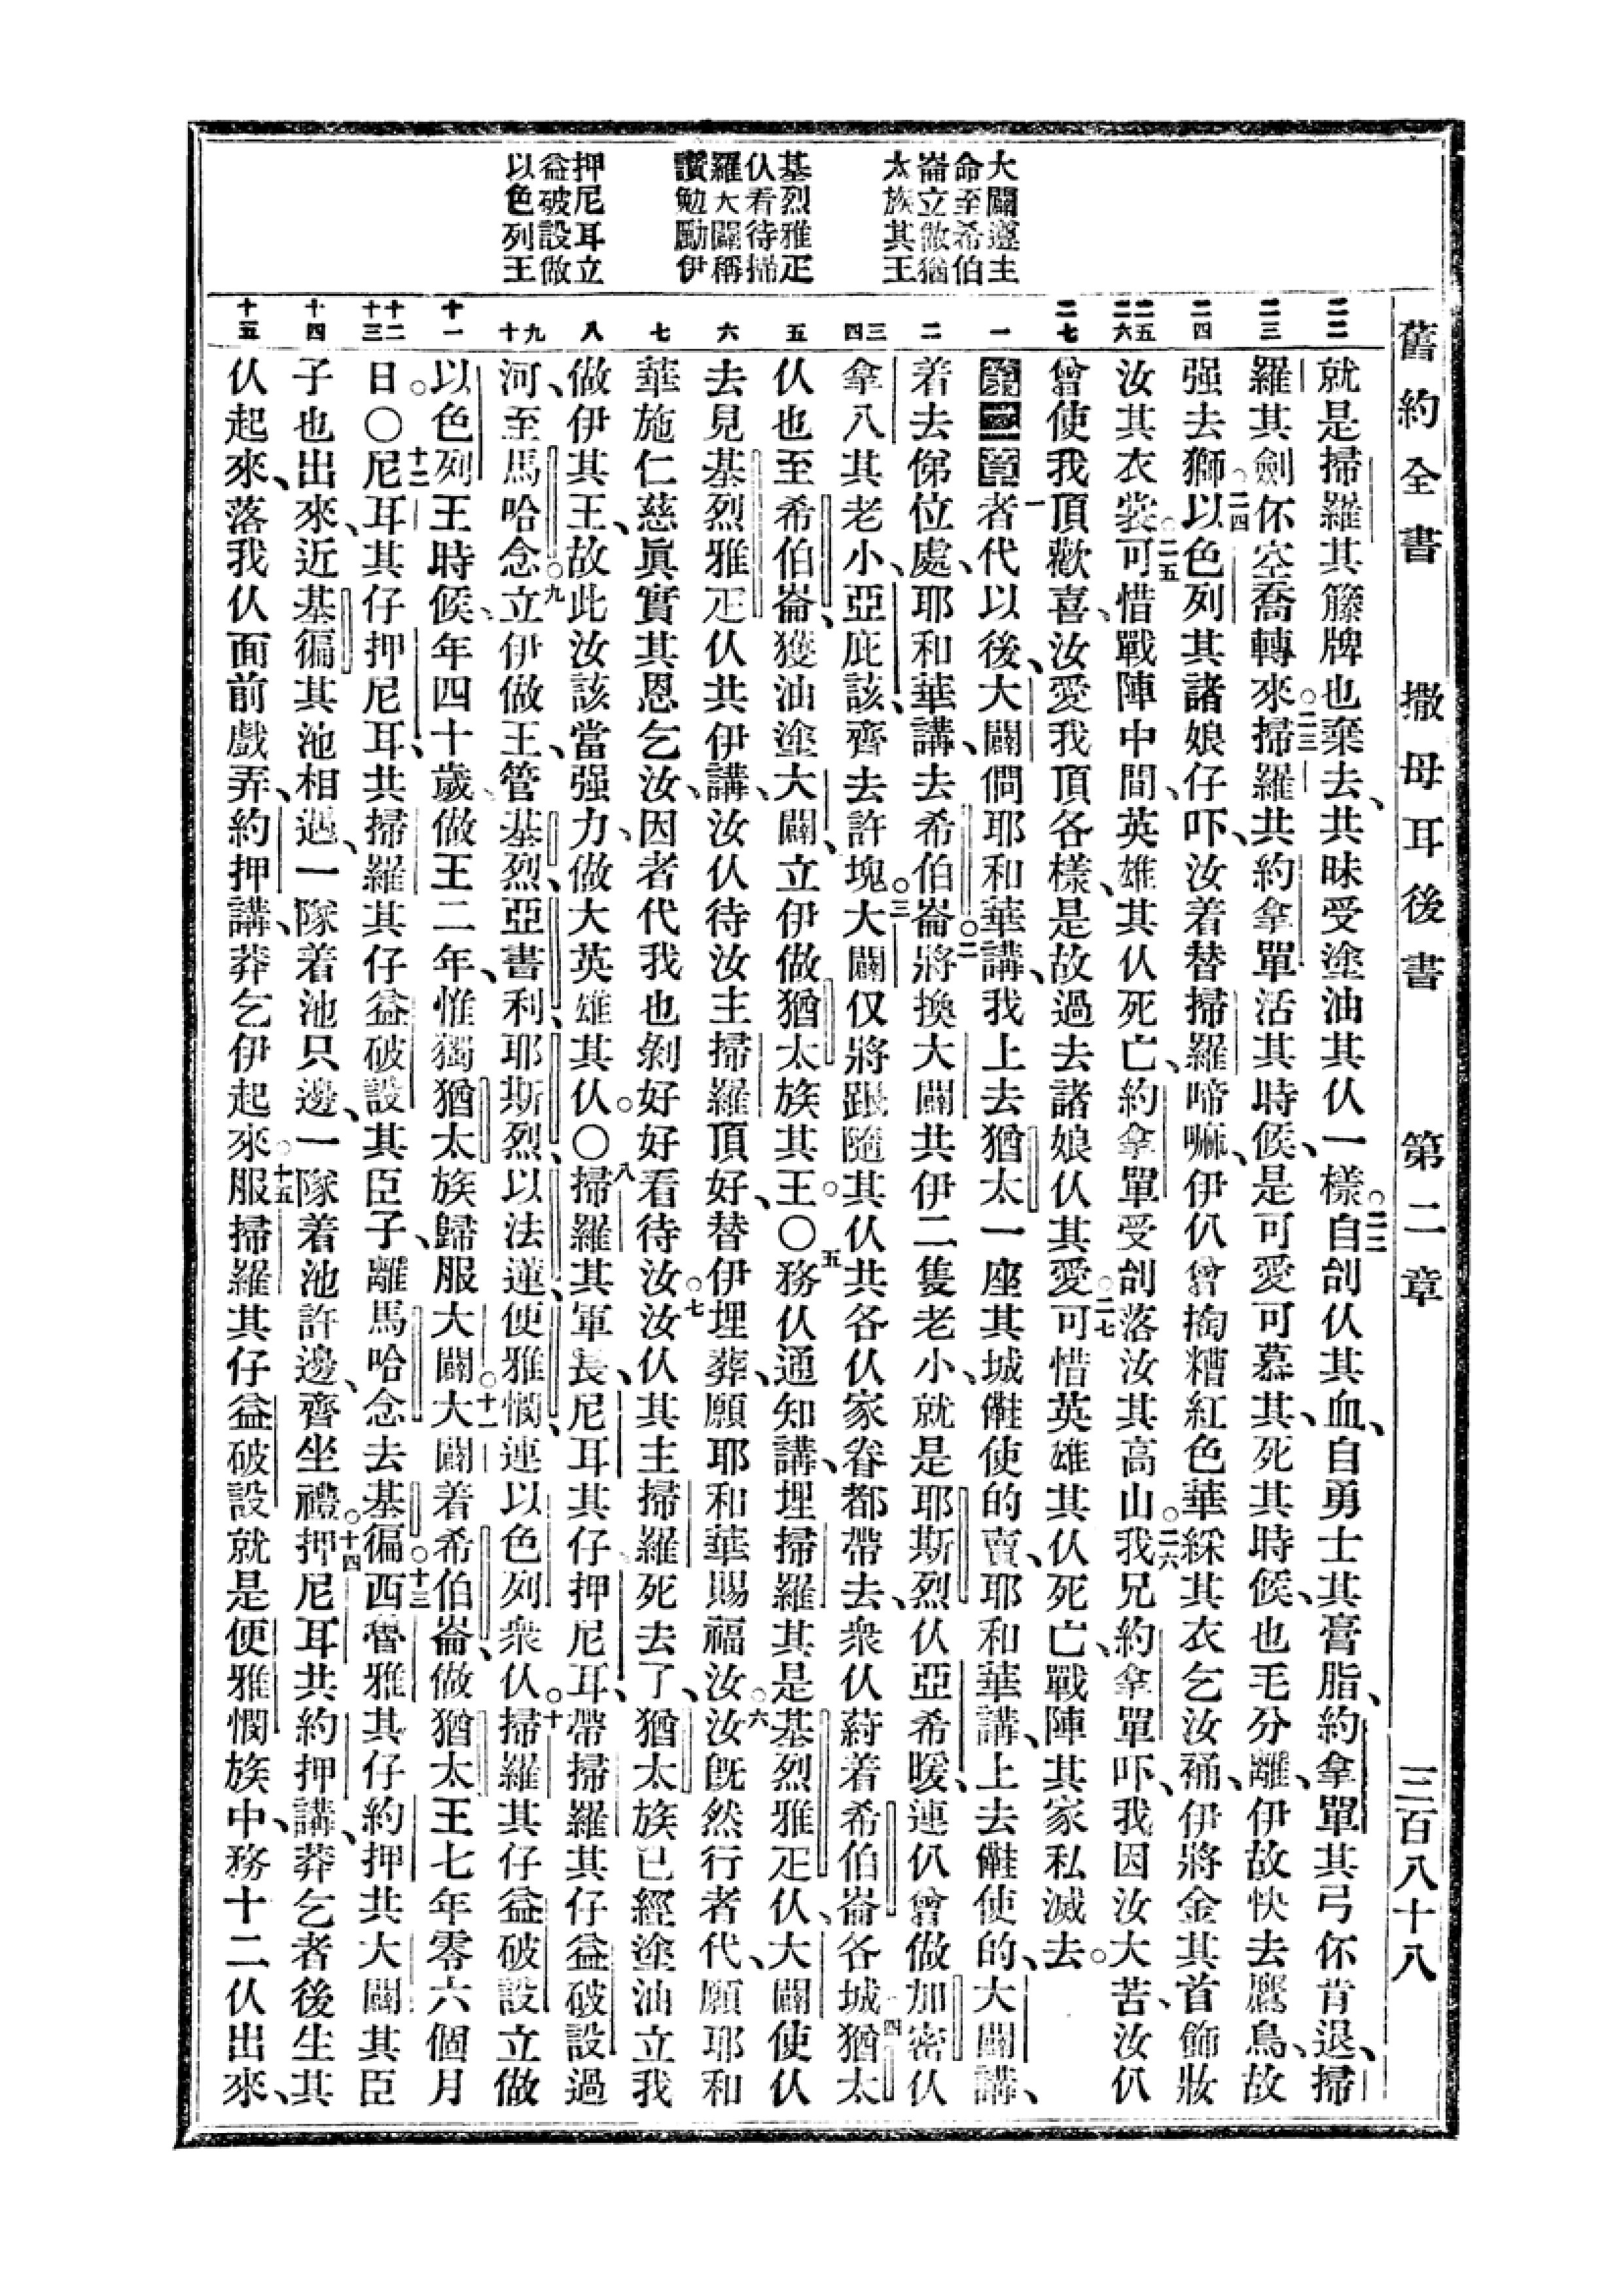 舊約全書 撒母耳後書 第二章 三百八十八
大闢遵主
命至希伯
崙立做猶
太族其王
基烈雅疋
仈看待掃
羅大闢稱
讚勉勵伊
押尼耳立
益破設做
以色列王
二二
二三
二四
二五
二六
二七
一
二
三
四
五
六
七
八
九
十
十一
十二
十三
十四
十五
就是掃羅其籐牌也棄去、共昧受塗油其仈一樣。二二自刣仈其血、自勇士其膏脂、約拿單其弓伓肯退、掃
羅其劍伓空喬轉來。二三掃羅共約拿單活其時候、是可愛可慕其、死其時候、也毛分離、伊故快去鷹鳥、故
强去獅。二四以色列其諸娘仔吓、汝着替掃羅啼嘛、伊仈曾掏糟紅色華綵其衣乞汝𧙕、伊將金其首飾妝
汝其衣裳。二五可惜戰陣中間、英雄其仈死亡、約拿單受刣落汝其高山。二六我兄約拿單吓、我因汝大苦、汝仈
曾使我頂歡喜、汝愛我頂各樣、是故過去諸娘仈其愛。二七可惜英雄其仈死亡、戰陣其家私滅去。
第二章一者代以後、大闢問耶和華講、我上去猶太一座其城𡅏使的賣、耶和華講、上去𡅏使的、大闢講、
着去俤位處、耶和華講、去希伯崙。二將換大闢共伊二隻老小、就是耶斯烈仈亞希暖、連仈曾做加密仈
拿八其老小、亞庇該、齊去許塊。三大闢仅將跟隨其仈共各仈家眷都帶去、衆仈蒔着希伯崙各城。四猶太
仈也至希伯崙、獲油塗大闢、立伊做猶太族其王。〇五務仈通知講、埋掃羅其是基烈雅疋仈、大闢使仈
去見基烈雅疋仈共伊講、汝仈待汝主掃羅頂好、替伊埋葬、願耶和華賜福汝。六汝旣然行者代、願耶和
華施仁慈眞實其恩乞汝、因者代我也剝好好看待汝。七汝仈其主掃羅死去了、猶太族已經塗油立我
做伊其王、故此汝該當强力、做大英雄其仈。〇八掃羅其軍長、尼耳其仔押尼耳、帶掃羅其仔益破設過
河、至馬哈念。九立伊做王、管基烈、亞書利、耶斯烈、以法蓮、便雅憫、連以色列衆仈。十掃羅其仔益破設立做
以色列王時候、年四十歲、做王二年、惟獨猶太族歸服大闢。十一大闢着希伯崙、做猶太王七年零六個月
日。〇十二尼耳其仔押尼耳、共掃羅其仔益破設其臣子、離馬哈念去基徧。十三西魯雅其仔約押共大闢其臣
子也出來、近基徧其池相遇、一隊着池只邊、一隊着池許邊、齊坐禮。十四押尼耳共約押講、莽乞者後生其
仈起來、落我仈面前戲弄、約押講、莽乞伊起來。十五服掃羅其仔益破設就是便雅憫族中、務十二仈出來、